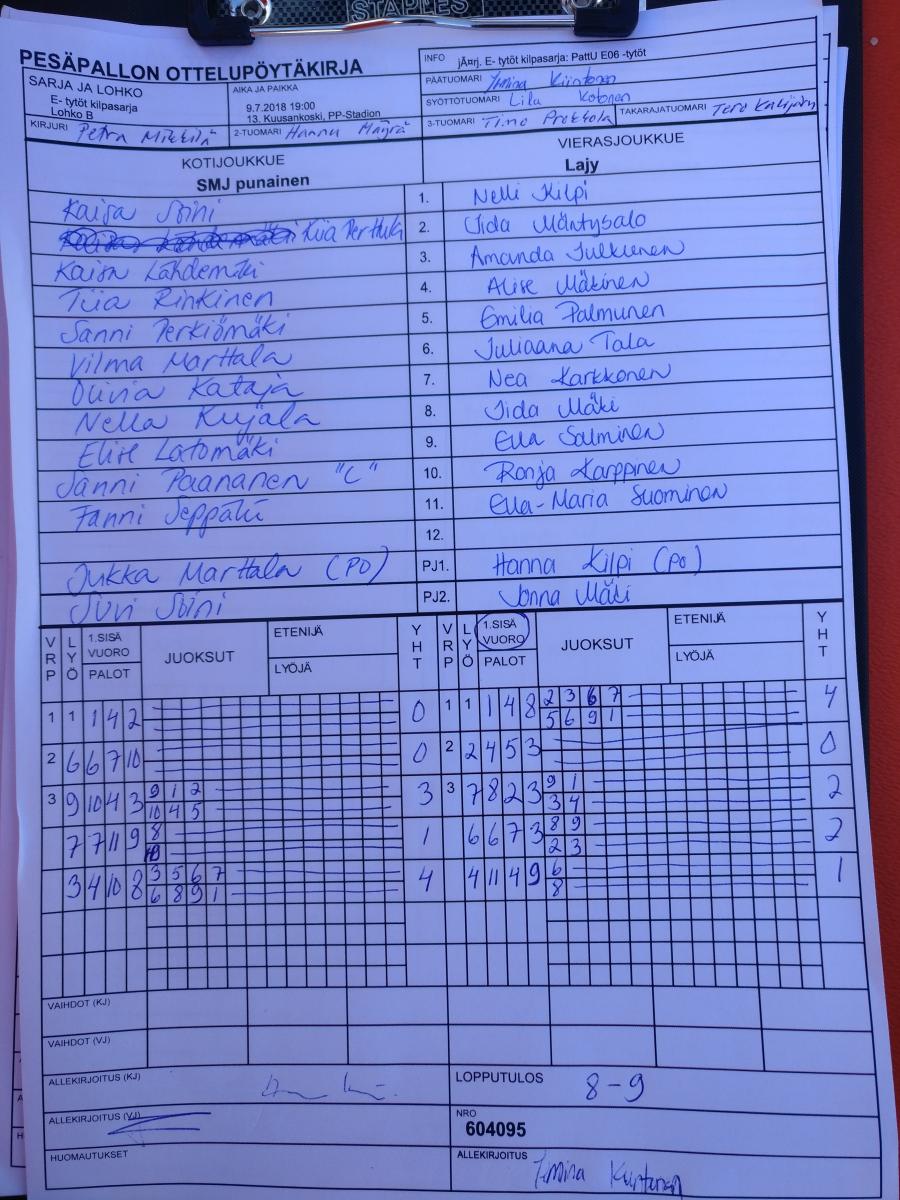 STAPLES
PESÄPALLON OTTELUPÖYTÄKIRJA
INFO jÄ¤rj. E- tytöt kilpasarja: PattU E06 -tytöt
SARJA JA LOHKO
E- tytöt kilpasarja
Lohko B
AIKA JA PAIKKA
9.7.2018 19:00
13. Kuusankoski, PP-Stadion
PÄÄTUOMARI Jemina Kiintonen
SYÖTTÖTUOMARI Lilu Kotonen
KIRJURI Petra Mikkilä
2-TUOMARI Hannu Häyrä
3-TUOMARI Timo Prokkola
TAKARAJATUOMARI Tero
KOTIJOUKKUE
SMJ punainen
VIERASJOUKKUE
Lajy
Kaisa Soini 1. Nelli Kilpi
Kiia Perttula 2. Iida Mäntysalo
Kaisa Lähdemäki 3. Amanda Julkunen
Tiia Rinkinen 4. Alise Mäkinen
Sanni Perkiömäki 5. Emilia Palmunen
Vilma Marttala 6. Juliaana Tala
Olivia Kataja 7. Nea Karkkonen
Nella Kujala 8. Iida Mäki
Elise Latomäki 9. Ella Salminen
Sanni Paananen "C" 10. Ronja Karppinen
Fanni Seppälä 11. Ella-Maria Suominen
12.
Jukka Marttala (PO) PJ1. Hanna Kilpi (PO)
Suvi Soini PJ2. Jonna Mäki
VRP LYÖ 1.SISÄ VUORO PALOT JUOKSUT ETENIJÄ LYÖJÄ YHT VRP LYÖ 1.SISÄ VUORO PALOT JUOKSUT ETENIJÄ LYÖJÄ YHT
1 1 1 4 2 0 1 1 1 4 8 2 3 6 7 4
5 6 9 1
2 6 6 7 10 0 2 2 4 5 3 0
3 9 10 4 3 9 1 2 3 3 7 8 2 3 9 1 2
10 4 5 3 4
7 7 11 9 8 1 6 6 7 3 8 9 2
2 3
3 4 10 8 3 5 6 7 4 4 11 4 9 6 1
6 8 9 1 8
VAIHDOT (KJ)
VAIHDOT (VJ)
ALLEKIRJOITUS (KJ)
LOPPUTULOS 8-9
ALLEKIRJOITUS (VJ)
NRO
604095
HUOMAUTUKSET
ALLEKIRJOITUS Jemina Kiintonen